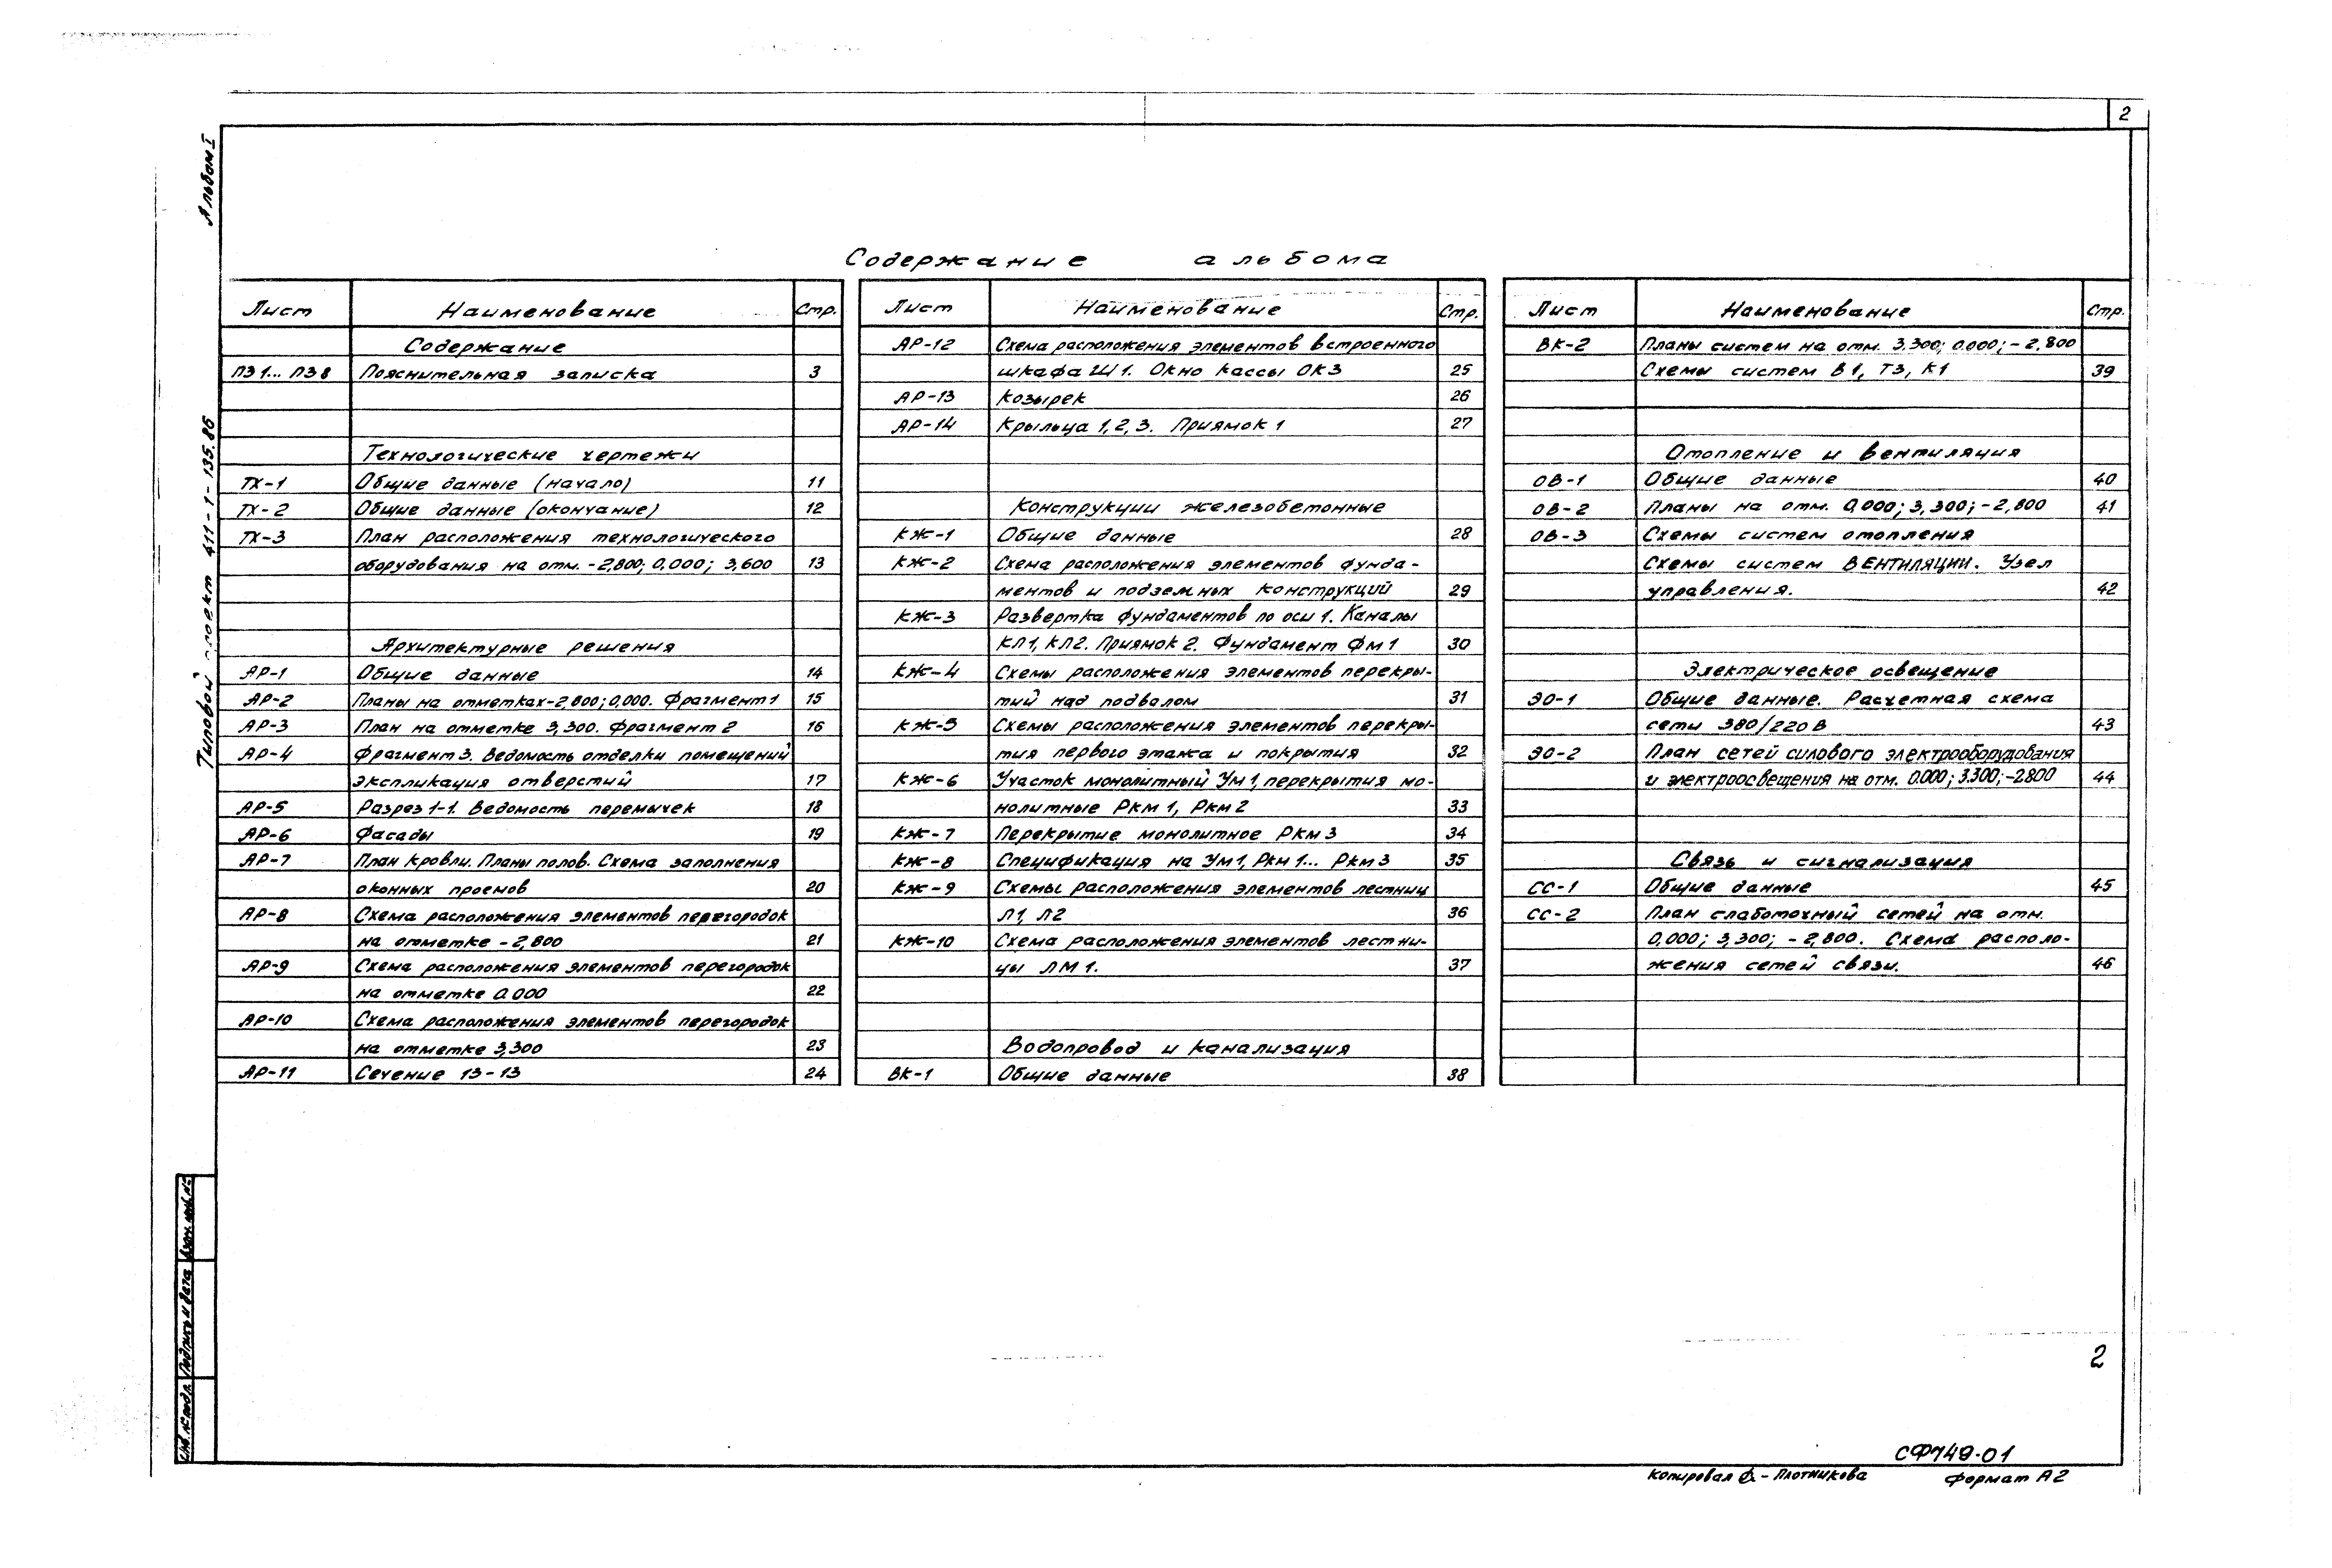 2
Альбом I
Типовой проект 411-1-135.86
Содержание альбома
Лист Наименование Стр.
Содержание
ПЗ1... ПЗ8 Пояснительная записка 3
Технологические чертежи
ТХ-1 Общие данные (начало) 11
ТХ-2 Общие данные (окончание) 12
ТХ-3 План расположения технологического
оборудования на отм. -2,800; 0,000; 3,600 13
Архитектурные решения
АР-1 Общие данные 14
АР-2 Планы на отметках-2,800; 0,000. Фрагмент 1 15
АР-3 План на отметке 3,300. Фрагмент 2 16
АР-4 Фрагмент 3. Ведомость отделки помещений
экспликация отверстий 17
АР-5 Разрез 1-1. Ведомость перемычек 18
АР-6 Фасады 19
АР-7 План кровли. Планы полов. Схема заполнения
оконных проемов 20
АР-8 Схема расположения элементов перегородок
на отметке -2,800 21
АР-9 Схема расположения элементов перегородок
на отметке 0.000 22
АР-10 Схема расположения элементов перегородок
на отметке 3,300 23
АР-11 Сечение 13-13 24
Лист Наименование Стр.
АР-12 Схема расположения элементов встроенного
шкафа Ш1. Окно кассы ОК3 25
АР-13 Козырек 26
АР-14 Крыльца 1, 2, 3. Приямок 1 27
Конструкции железобетонные
КЖ-1 Общие данные 28
КЖ-2 Схема расположения элементов фунда-
ментов и подземных конструкций 29
КЖ-3 Развертка фундаментов по оси 1. Каналы
КЛ1, КЛ2. Приямок 2. Фундамент Фм1 30
КЖ-4 Схемы расположения элементов перекры-
тий над подвалом 31
КЖ-5 Схемы расположения элементов перекры-
тия первого этажа и покрытия 32
КЖ-6 Участок монолитный Ум1, перекрытия мо-
нолитные Ркм1, Ркм2 33
КЖ-7 Перекрытие монолитное Ркм3 34
КЖ-8 Спецификация на Ум1, Ркм1... Ркм3 35
КЖ-9 Схемы расположения элементов лестниц
Л1, Л2 36
КЖ-10 Схема расположения элементов лестни-
цы ЛМ1. 37
Водопровод и канализация
ВК-1 Общие данные 38
Лист Наименование Стр.
ВК-2 Планы систем на отм. 3.300; 0.000; -2,800
Схемы систем В1, Т3, К1 39
Отопление и вентиляция
ОВ-1 Общие данные 40
ОВ-2 Планы на отм. 0,000; 3,300; -2,800 41
ОВ-3 Схемы систем отопления
Схемы систем вентиляции. Узел
управления. 42
Электрическое освещение
ЭО-1 Общие данные. Расчетная схема
сети 380/220 В 43
ЭО-2 План сетей силового электрооборудования
и электроосвещения на отм. 0.000; 3.300; -2800 44
Связь и сигнализация
СС-1 Общие данные 45
СС-2 План слаботочный сетей на отм.
0,000; 3,300; -2,800. Схема располо-
жения сетей связи. 46
Инв. № подл. Подпись и дата Взам. инв. №
2
СФ749-01
Копировал - Плотникова Формат А2